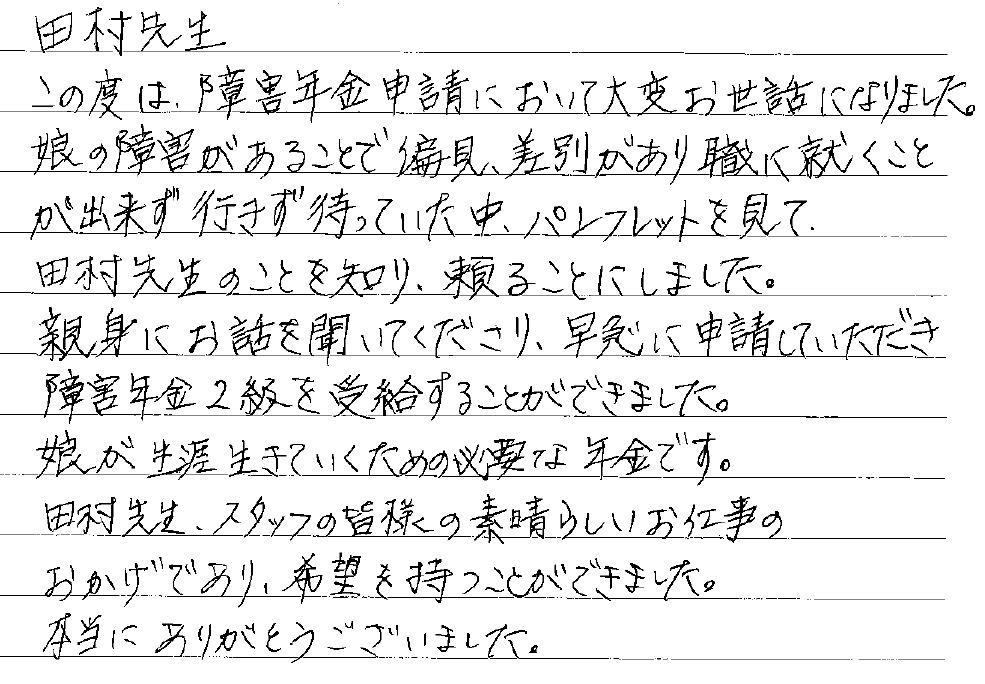 田村先生
この度は、障害年金申請において大変お世話になりました。
娘の障害があることで偏見、差別があり職に就くこと
が出来ず行きず待っていた中、パンフレットを見て、
田村先生のことを知り、頼ることにしました。
親身にお話を聞いてくださり、早急に申請していただき
障害年金2級を受給することができました。
娘が生涯生きていくための必要な年金です。
田村先生、スタッフの皆様の素晴らしいお仕事の
おかげであり、希望を持つことができました。
本当にありがとうございました。